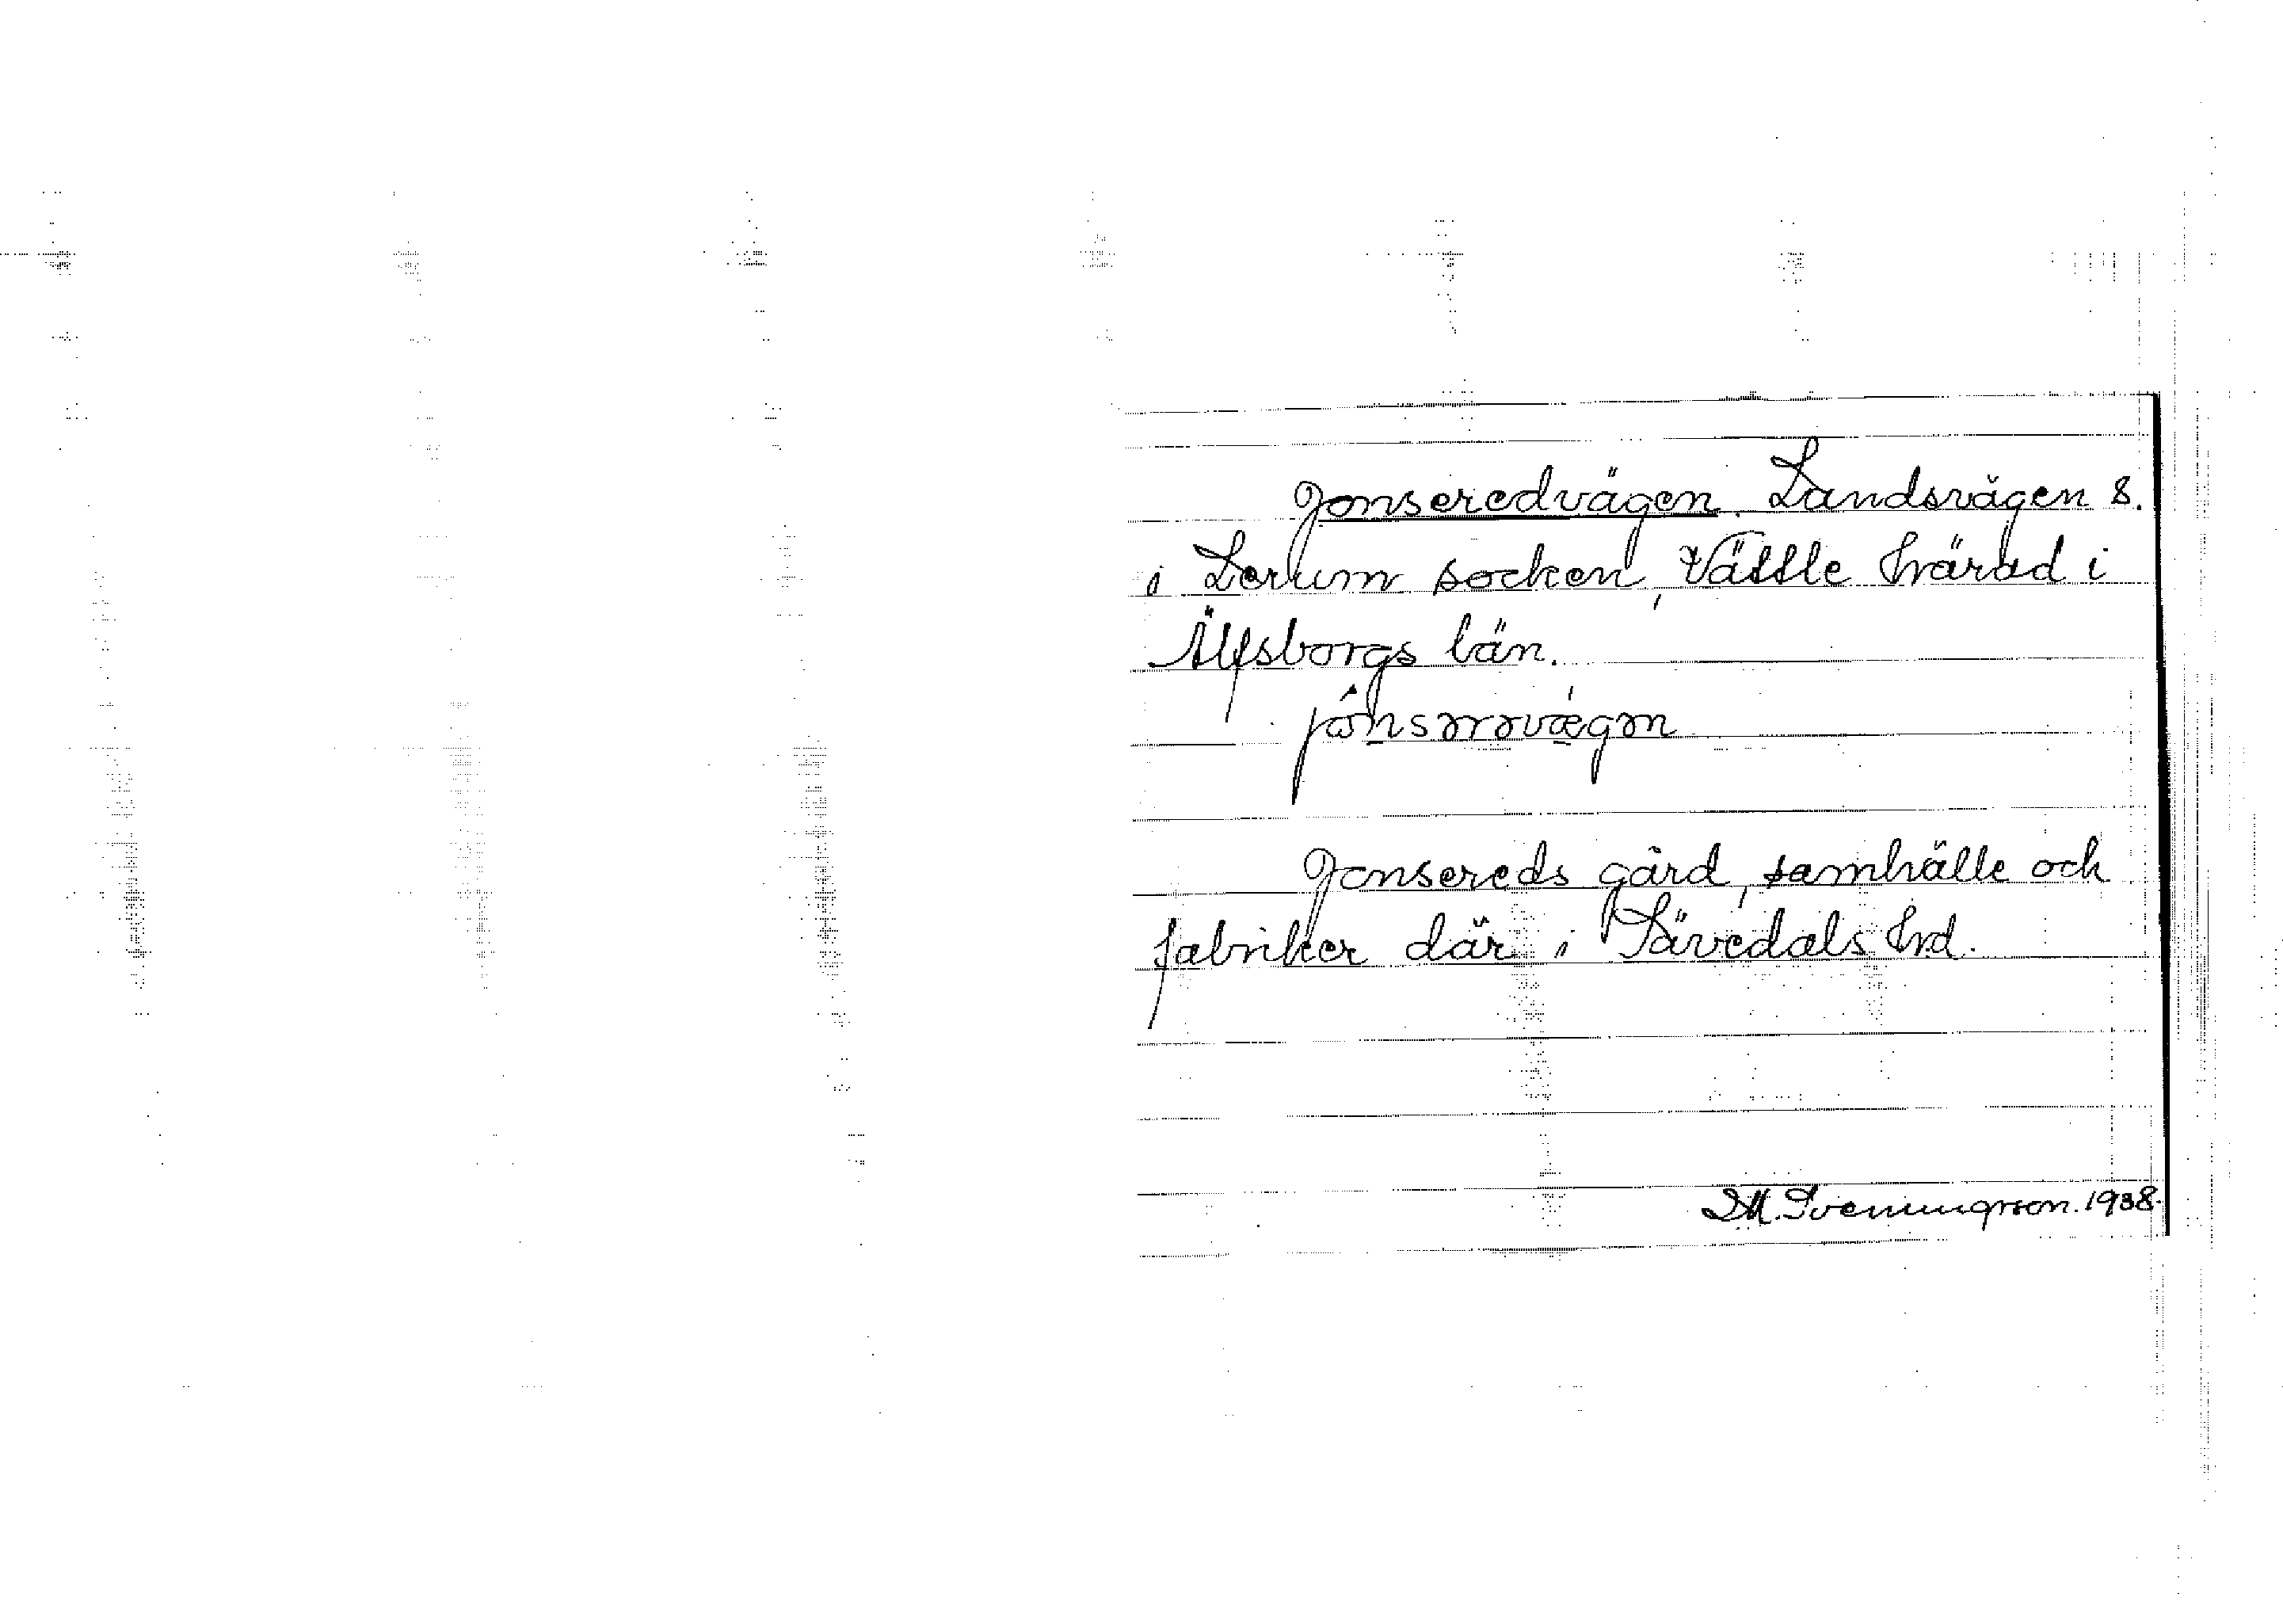 Jonseredvägen. Landsvägen 8.
i Lerum socken, Vättle härad i
Älfsborgs län.
jɷ́nsərəvǽgən
Jonsereds gård, samhälle och
fabriker där i Sävedals hrd.
D.M. Svenningsson. 1938.